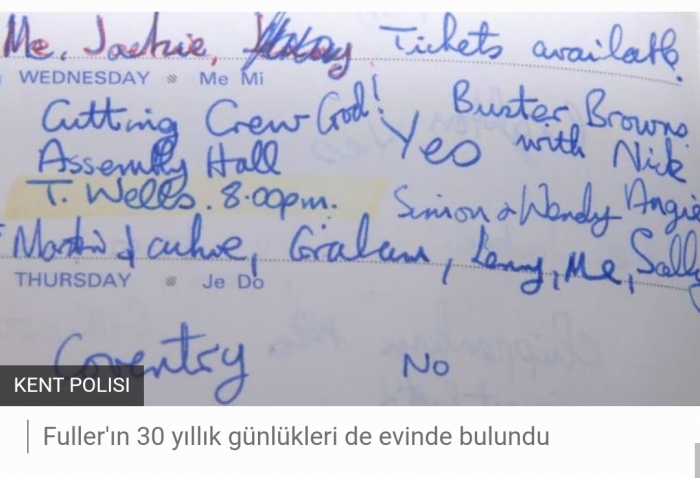 Me, Jackie, Tickets available
WEDNESDAY Me Mi
Cutting Crew God! Buster Browns
Yes with Nick
Assembly Hall
T. Wells. 8.00pm. Simon & Wendy Angie
Martin Jackie, Graham, Lenny, Me, Sally
THURSDAY Je Do
Coventry No
KENT POLISI
Fuller'ın 30 yıllık günlükleri de evinde bulundu